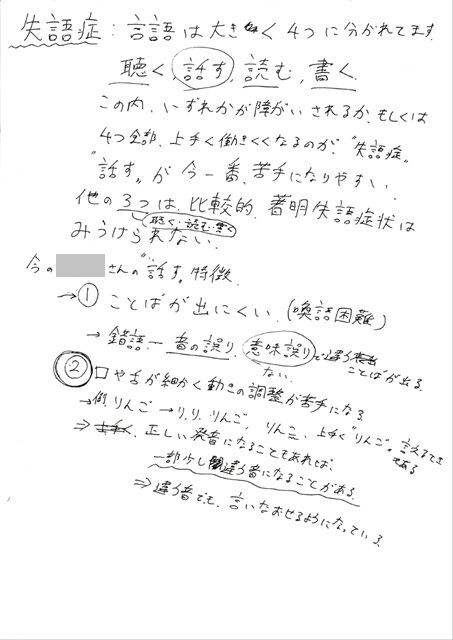 失語症：言語は大きく4つに分かれてます.
聴く,話す,読む,書く.
この内,いずれかが障がいされるか,もしくは
4つ全部,上手く働きにくくなるのが,"失語症"
"話す"が今一番,苦手になりやすい.
他の3つは,比較的,著明失語症状は
聴く・読む・書く
みうけられない.
今の さんの"話す"特徴.
→① ことばが出にくい.(喚語困難)
→錯語─音の誤り,意味誤りで違う
ことばが出る.
ない.
②口や舌が細かく動きの調整が苦手になる.
→例.りんご→り,り,りんご,りんこ,上手く"りんご"言えるとき
もある
⇒正しい発音になることもあれば,
一部少し違う音になることがある.
⇒違う音でも,言いなおせるようになっている.